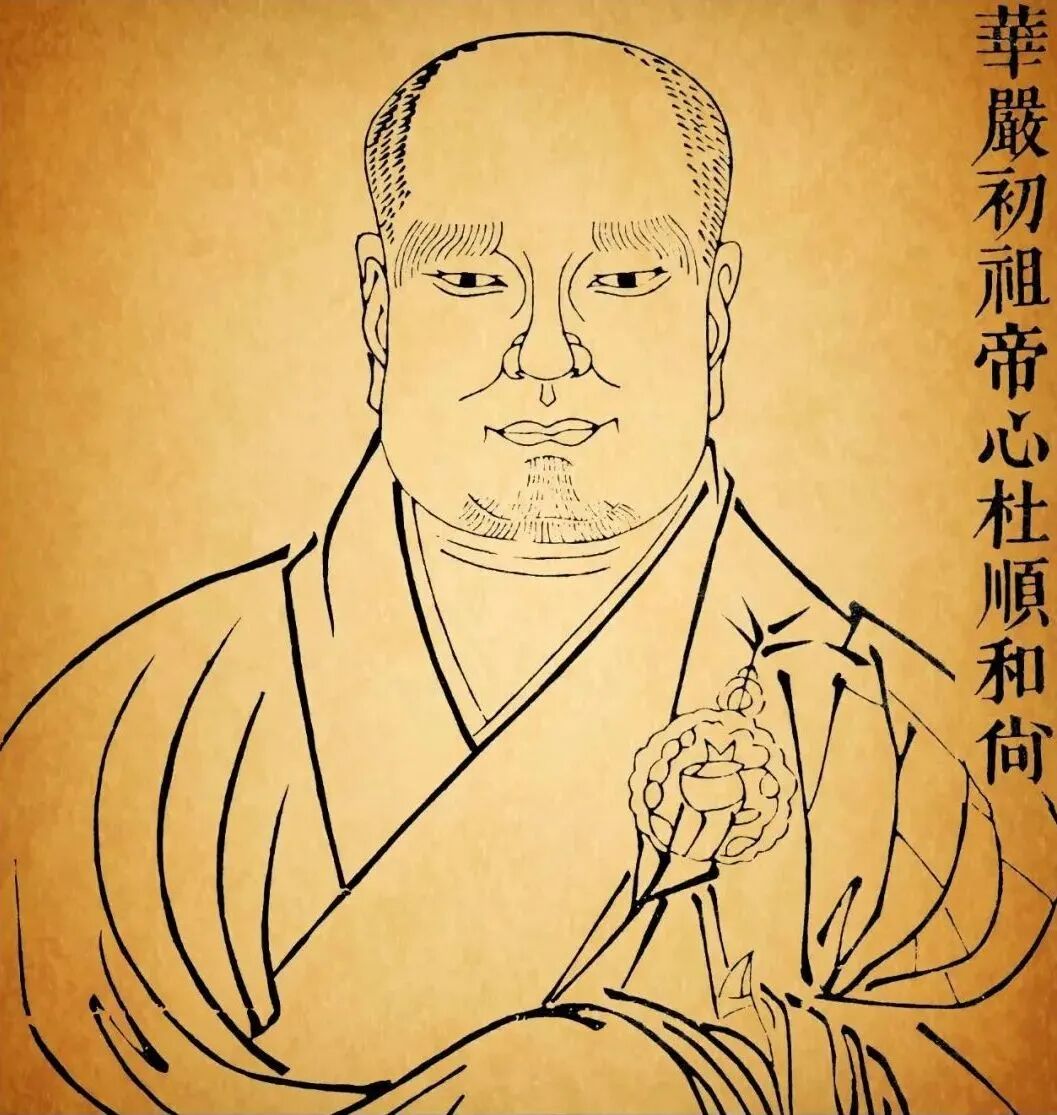 華嚴初祖帝心杜順和尙